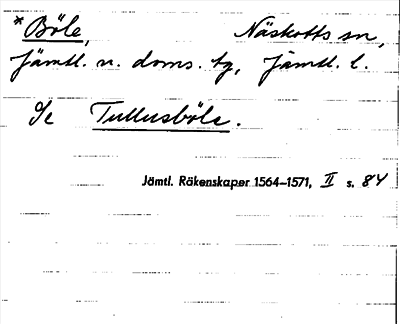 * Böle, Näskotts sn,
Jämtl. n. doms. tg, Jämtl. l.
Se Tullusböle.
Jämtl. Räkenskaper 1564–1571, II s. 84